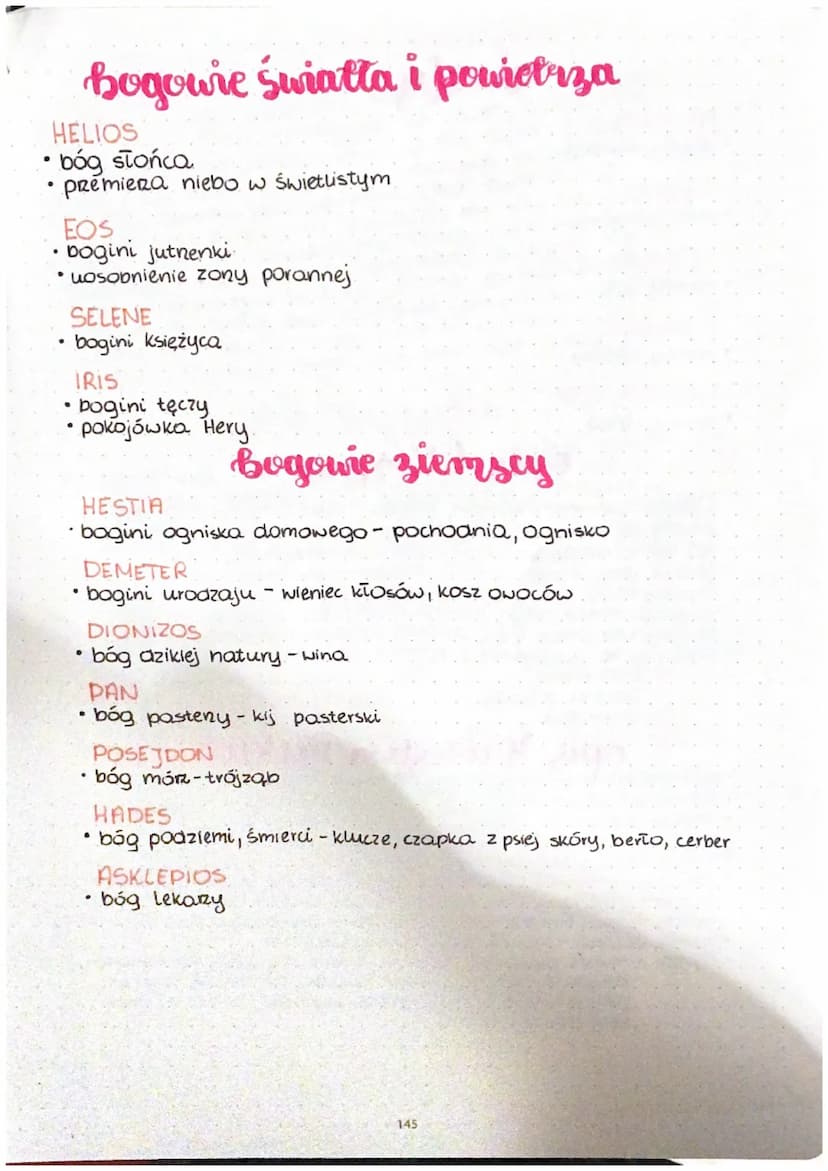 Bogowie światła i powietrza
HELIOS
• bóg słońca
• przemierza niebo w świetlistym
EOS
• bogini jutrzenki
• uosobnienie zorzy porannej
SELENE
• bogini księżyca
IRIS
• bogini tęczy
• pokojówka Hery
Bogowie ziemscy
HESTIA
• bogini ogniska domowego - pochodnia, ognisko
DEMETER
• bogini urodzaju - wieniec kłosów, kosz owoców
DIONIZOS
• bóg dzikiej natury - wina
PAN
• bóg pasterzy - kij pasterski
POSEJDON
• bóg mórz - trójząb
HADES
• bóg podziemi, śmierci - klucze, czapka z psiej skóry, berło, cerber
ASKLEPIOS
• bóg lekarzy
145